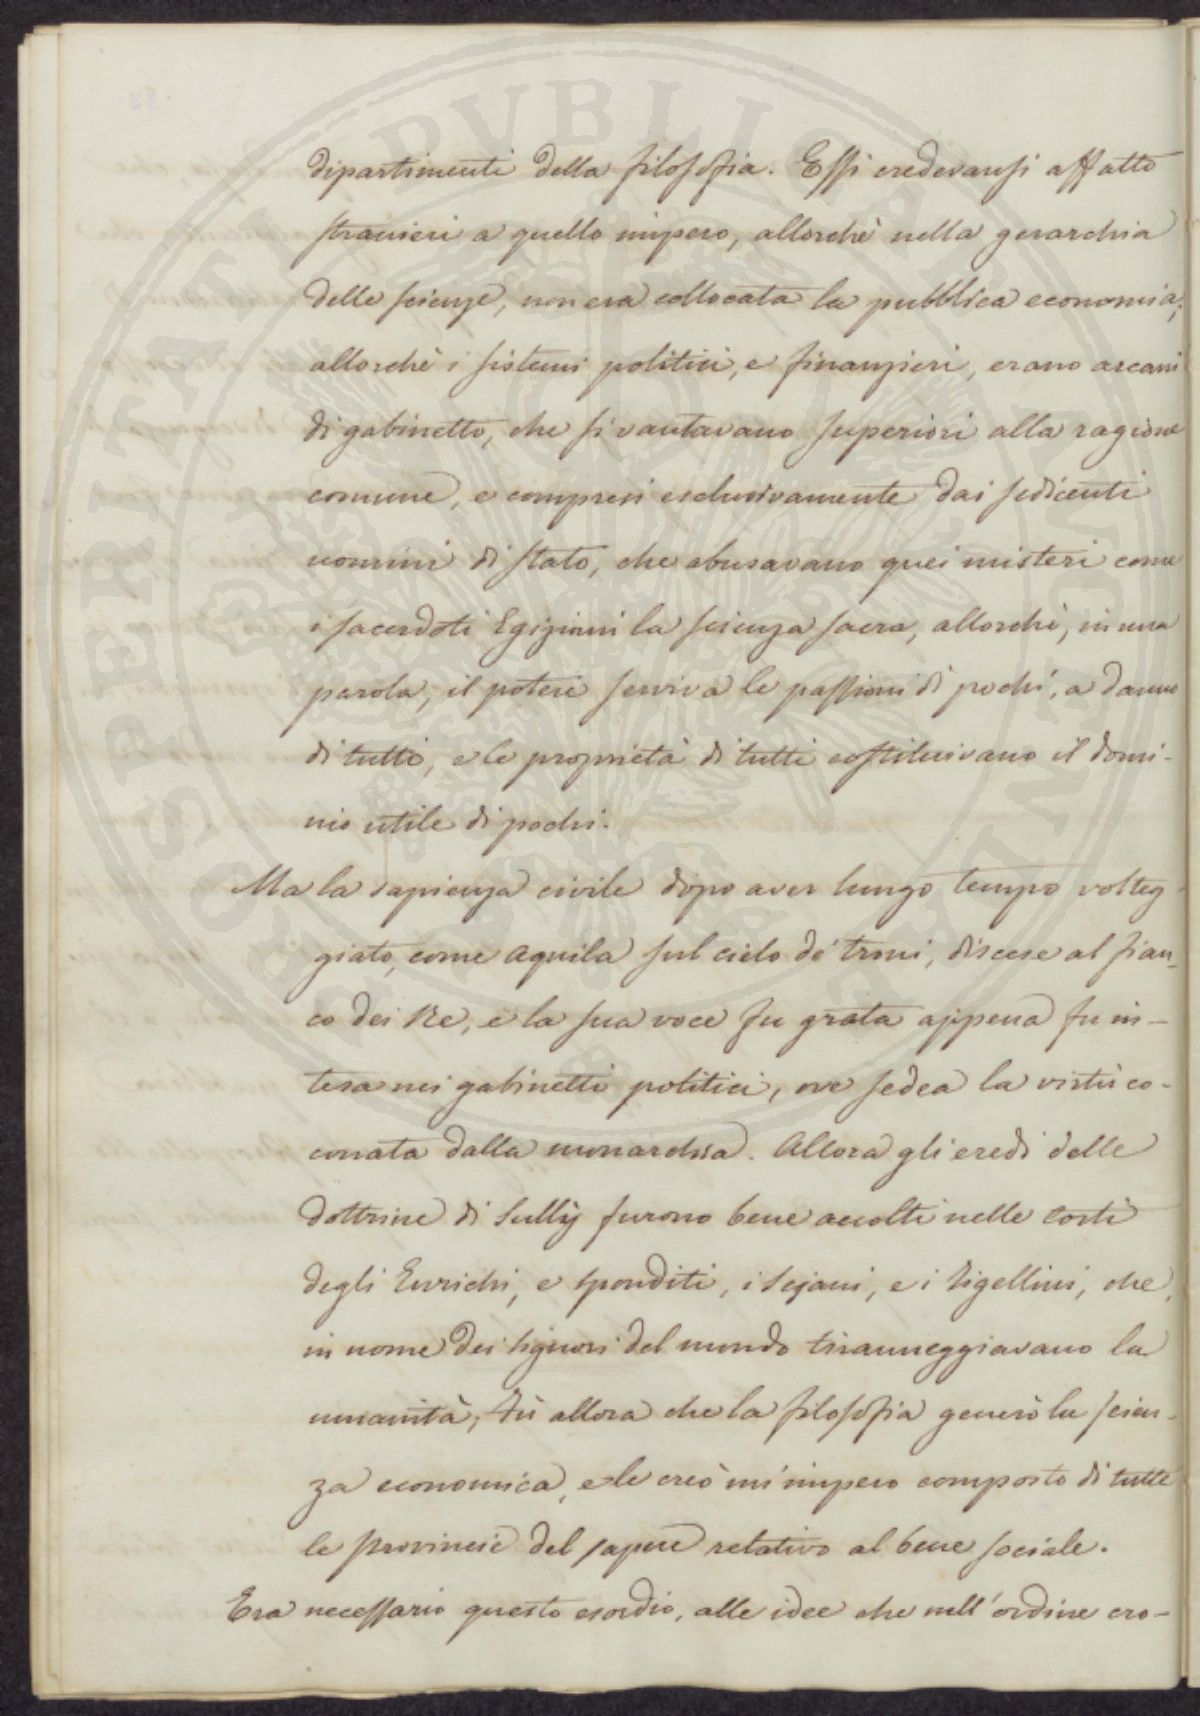 dipartimenti della filosofia. Essi credevansi affatto
stranieri a quello impero, allorchè nella gerarchia
delle scienze, non era collocata la pubblica economia;
allorchè i sistemi politici, e finanzieri, erano arcani
di gabinetto, che si vantavano superiori alla ragione
comune, e compresi esclusivamente dai sedicenti
uomini di stato, che abusavano quei misteri come
i sacerdoti Egiziani la scienza sacra, allorchè, in una
parola, il potere serviva le passioni di pochi, a danno
di tutti, e le proprietà di tutti costituivano il domi-
nio utile di pochi.
Ma la sapienza civile dopo aver lungo tempo volteg-
giato, come aquila sul cielo de' troni, discese al fian-
co dei Re, e la sua voce fu grata appena fu in-
tesa nei gabinetti politici, ove sedea la virtù co-
ronata dalla monarchia. Allora gli eredi delle
dottrine di Sully furono bene accolti nelle corti
degli Enrichi, e sponditi, i Sejani, e i Tigellini, che,
in nome dei signori del mondo tiranneggiavano la
umanità; Fù allora che la filosofia generò la scien-
za economica, e le creò un'impero composto di tutte
le provincie del sapere relativo al bene sociale.
Era necessario questo esordio, alle idee che nell'ordine cro-
PROSPERITATI PUBLICAE